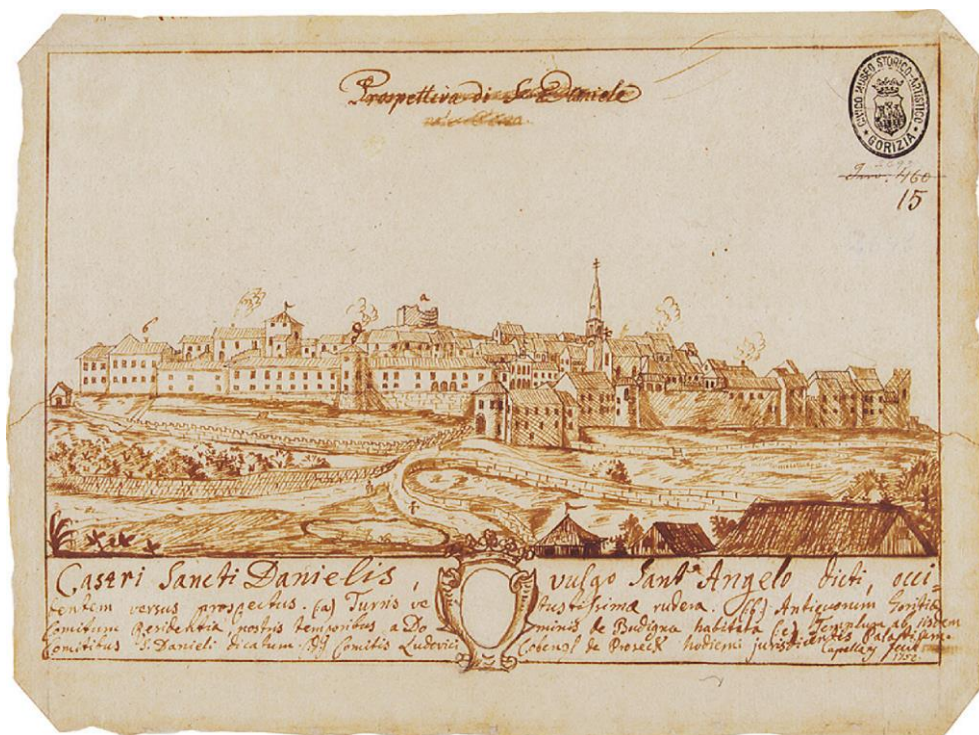 Prospettiva di S. Daniele
CIVICO MUSEO STORICO-ARTISTICO
GORIZIA
Inv. 460
15
a
Castri Sancti Danielis, vulgo Sant Angelo dicti, occi-
dentem versus prospectus. (a) Turris ve tustissimæ rudera. (b) Antiquorum Goritiæ
Comitum Residentia nostris temporibus a Do minis de Budigna habitata (c) Templum ab iisdem
Comitibus S. Danieli dicatum. (d) Comitis Ludovici Cobenzl de Proseck hodierni jurisdicentis Palatium
Capelleg fecit
1752